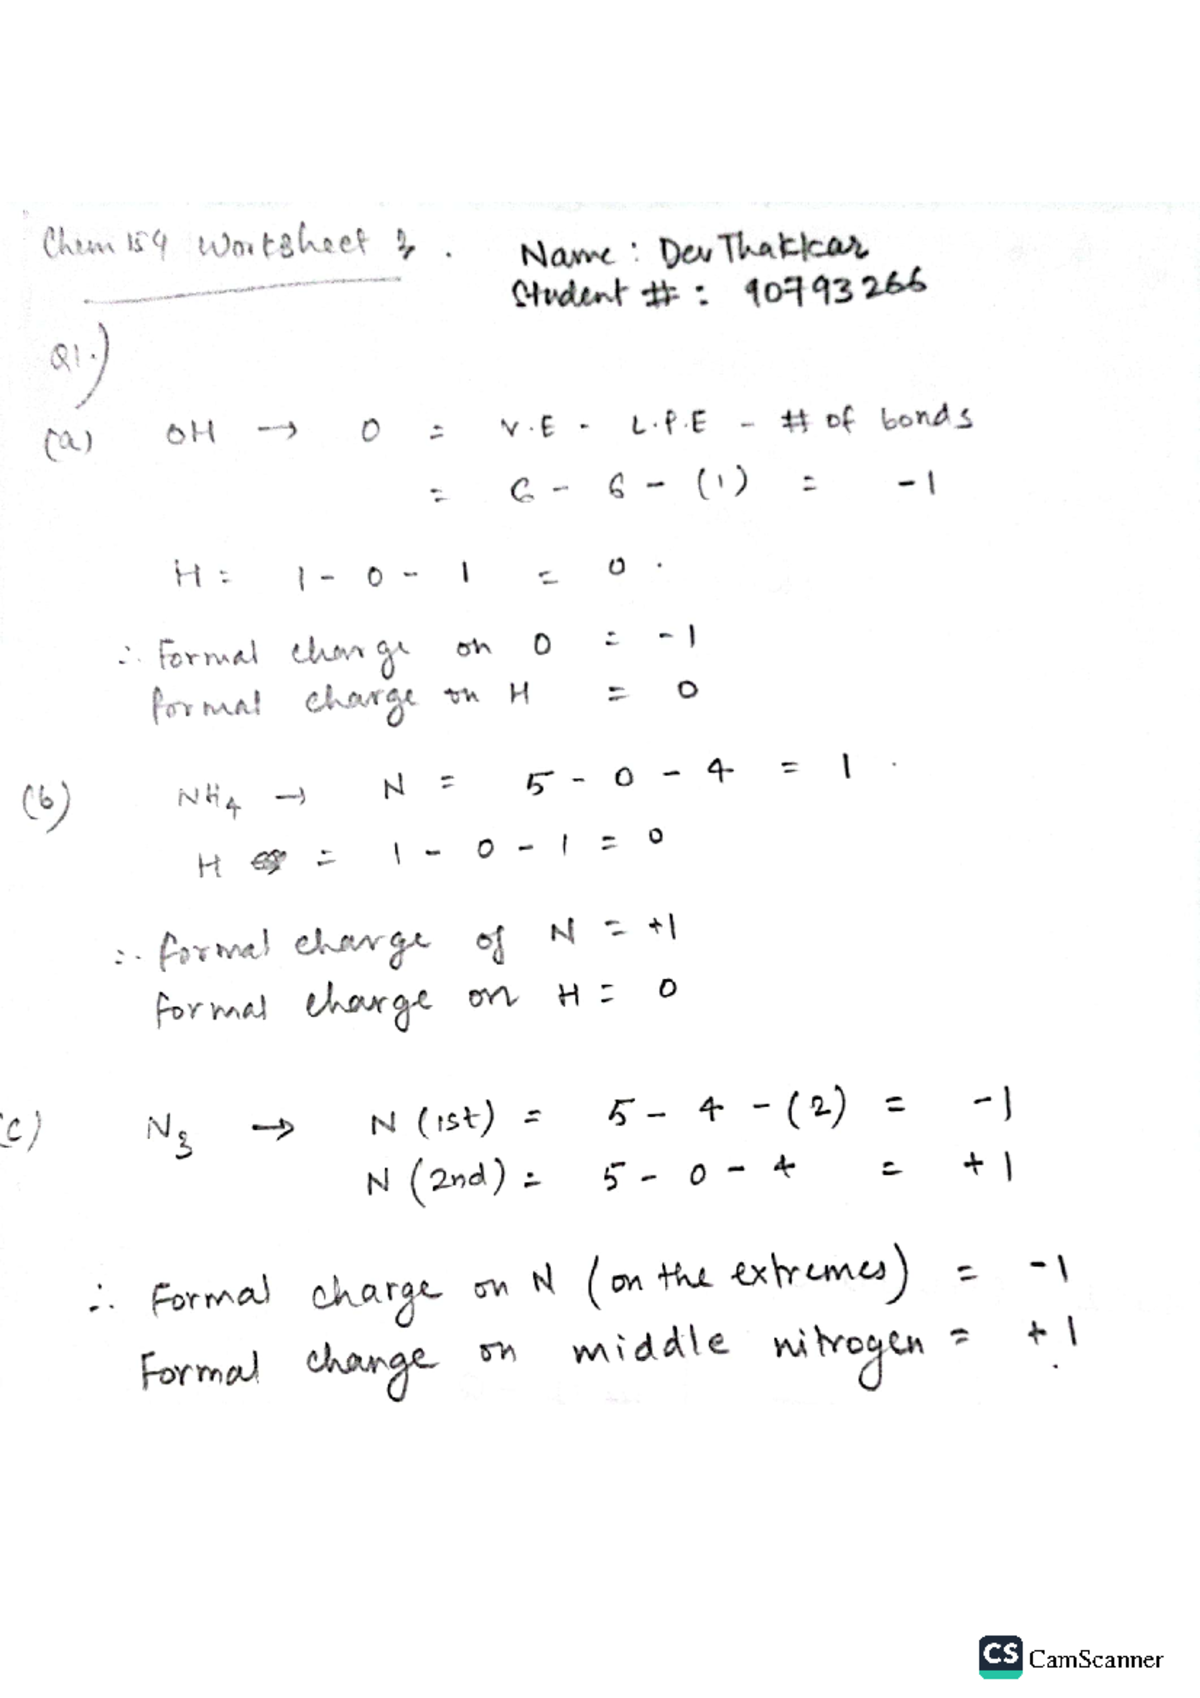 Chem 154 Worksheet 3.
Name : Dev Thakkar
Student # : 90793266
Q1.)
(a) OH → O = V.E - L.P.E - # of bonds
= 6 - 6 - (1) = -1
H = 1 - 0 - 1 = 0 .
∴ Formal charge on O = -1
formal charge on H = 0
(b) NH4 → N = 5 - 0 - 4 = 1 .
H = 1 - 0 - 1 = 0
∴ formal charge of N = +1
formal charge on H = 0
(c) N3 → N (1st) = 5 - 4 - (2) = -1
N (2nd) = 5 - 0 - 4 = +1
∴ Formal charge on N (on the extremes) = -1
Formal charge on middle nitrogen = +1
CS CamScanner